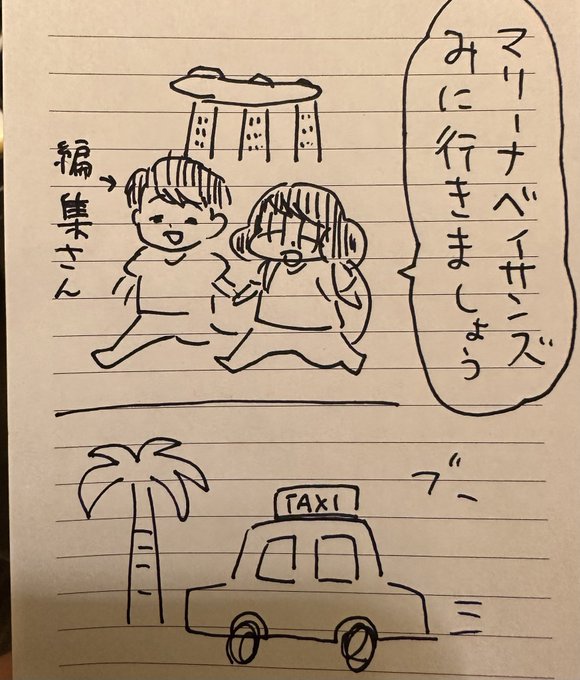 マリーナベイサンズ
みに行きましょう
編集さん
TAXI
ブーン